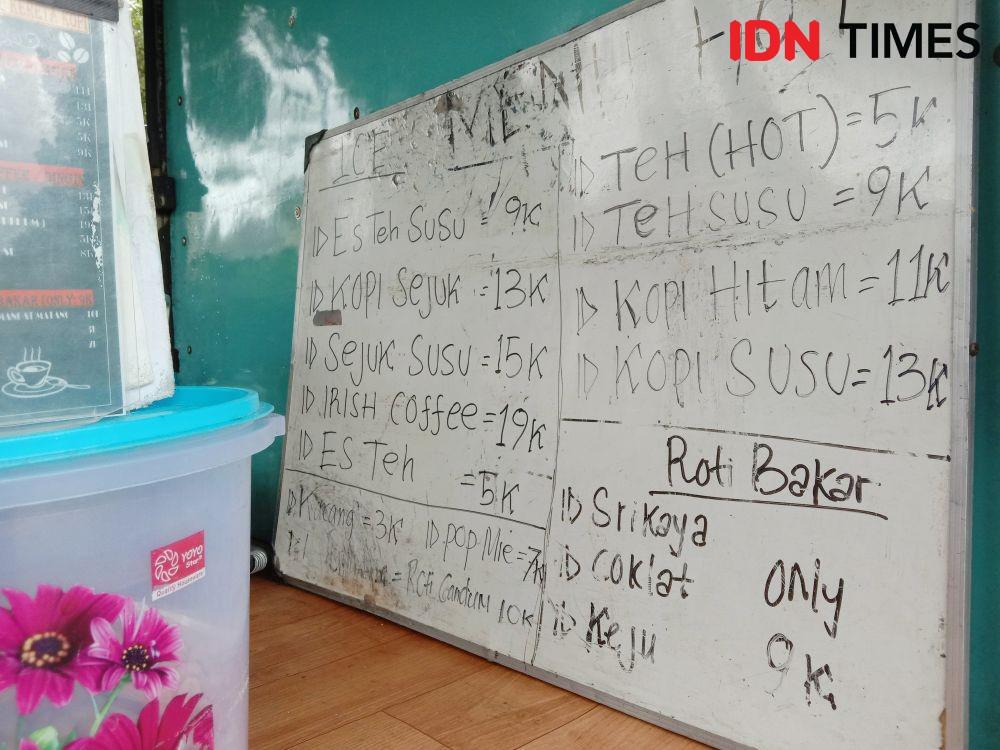 IDN TIMES
KERETA KOPI
MENU HOT
ICE
Es Teh Susu = 9K
Kopi Sejuk = 13K
Sejuk Susu = 15K
IRISH Coffee = 19K
Es Teh = 5K
Kacang = 3K
Pop Mie = 7K
= Roti Gandum 10K
Teh (HOT) = 5K
Teh Susu = 9K
Kopi Hitam = 11K
Kopi Susu = 13K
Roti Bakar
Srikaya
Coklat
Keju
Only
9K
yoyo
Star
Quality Houseware